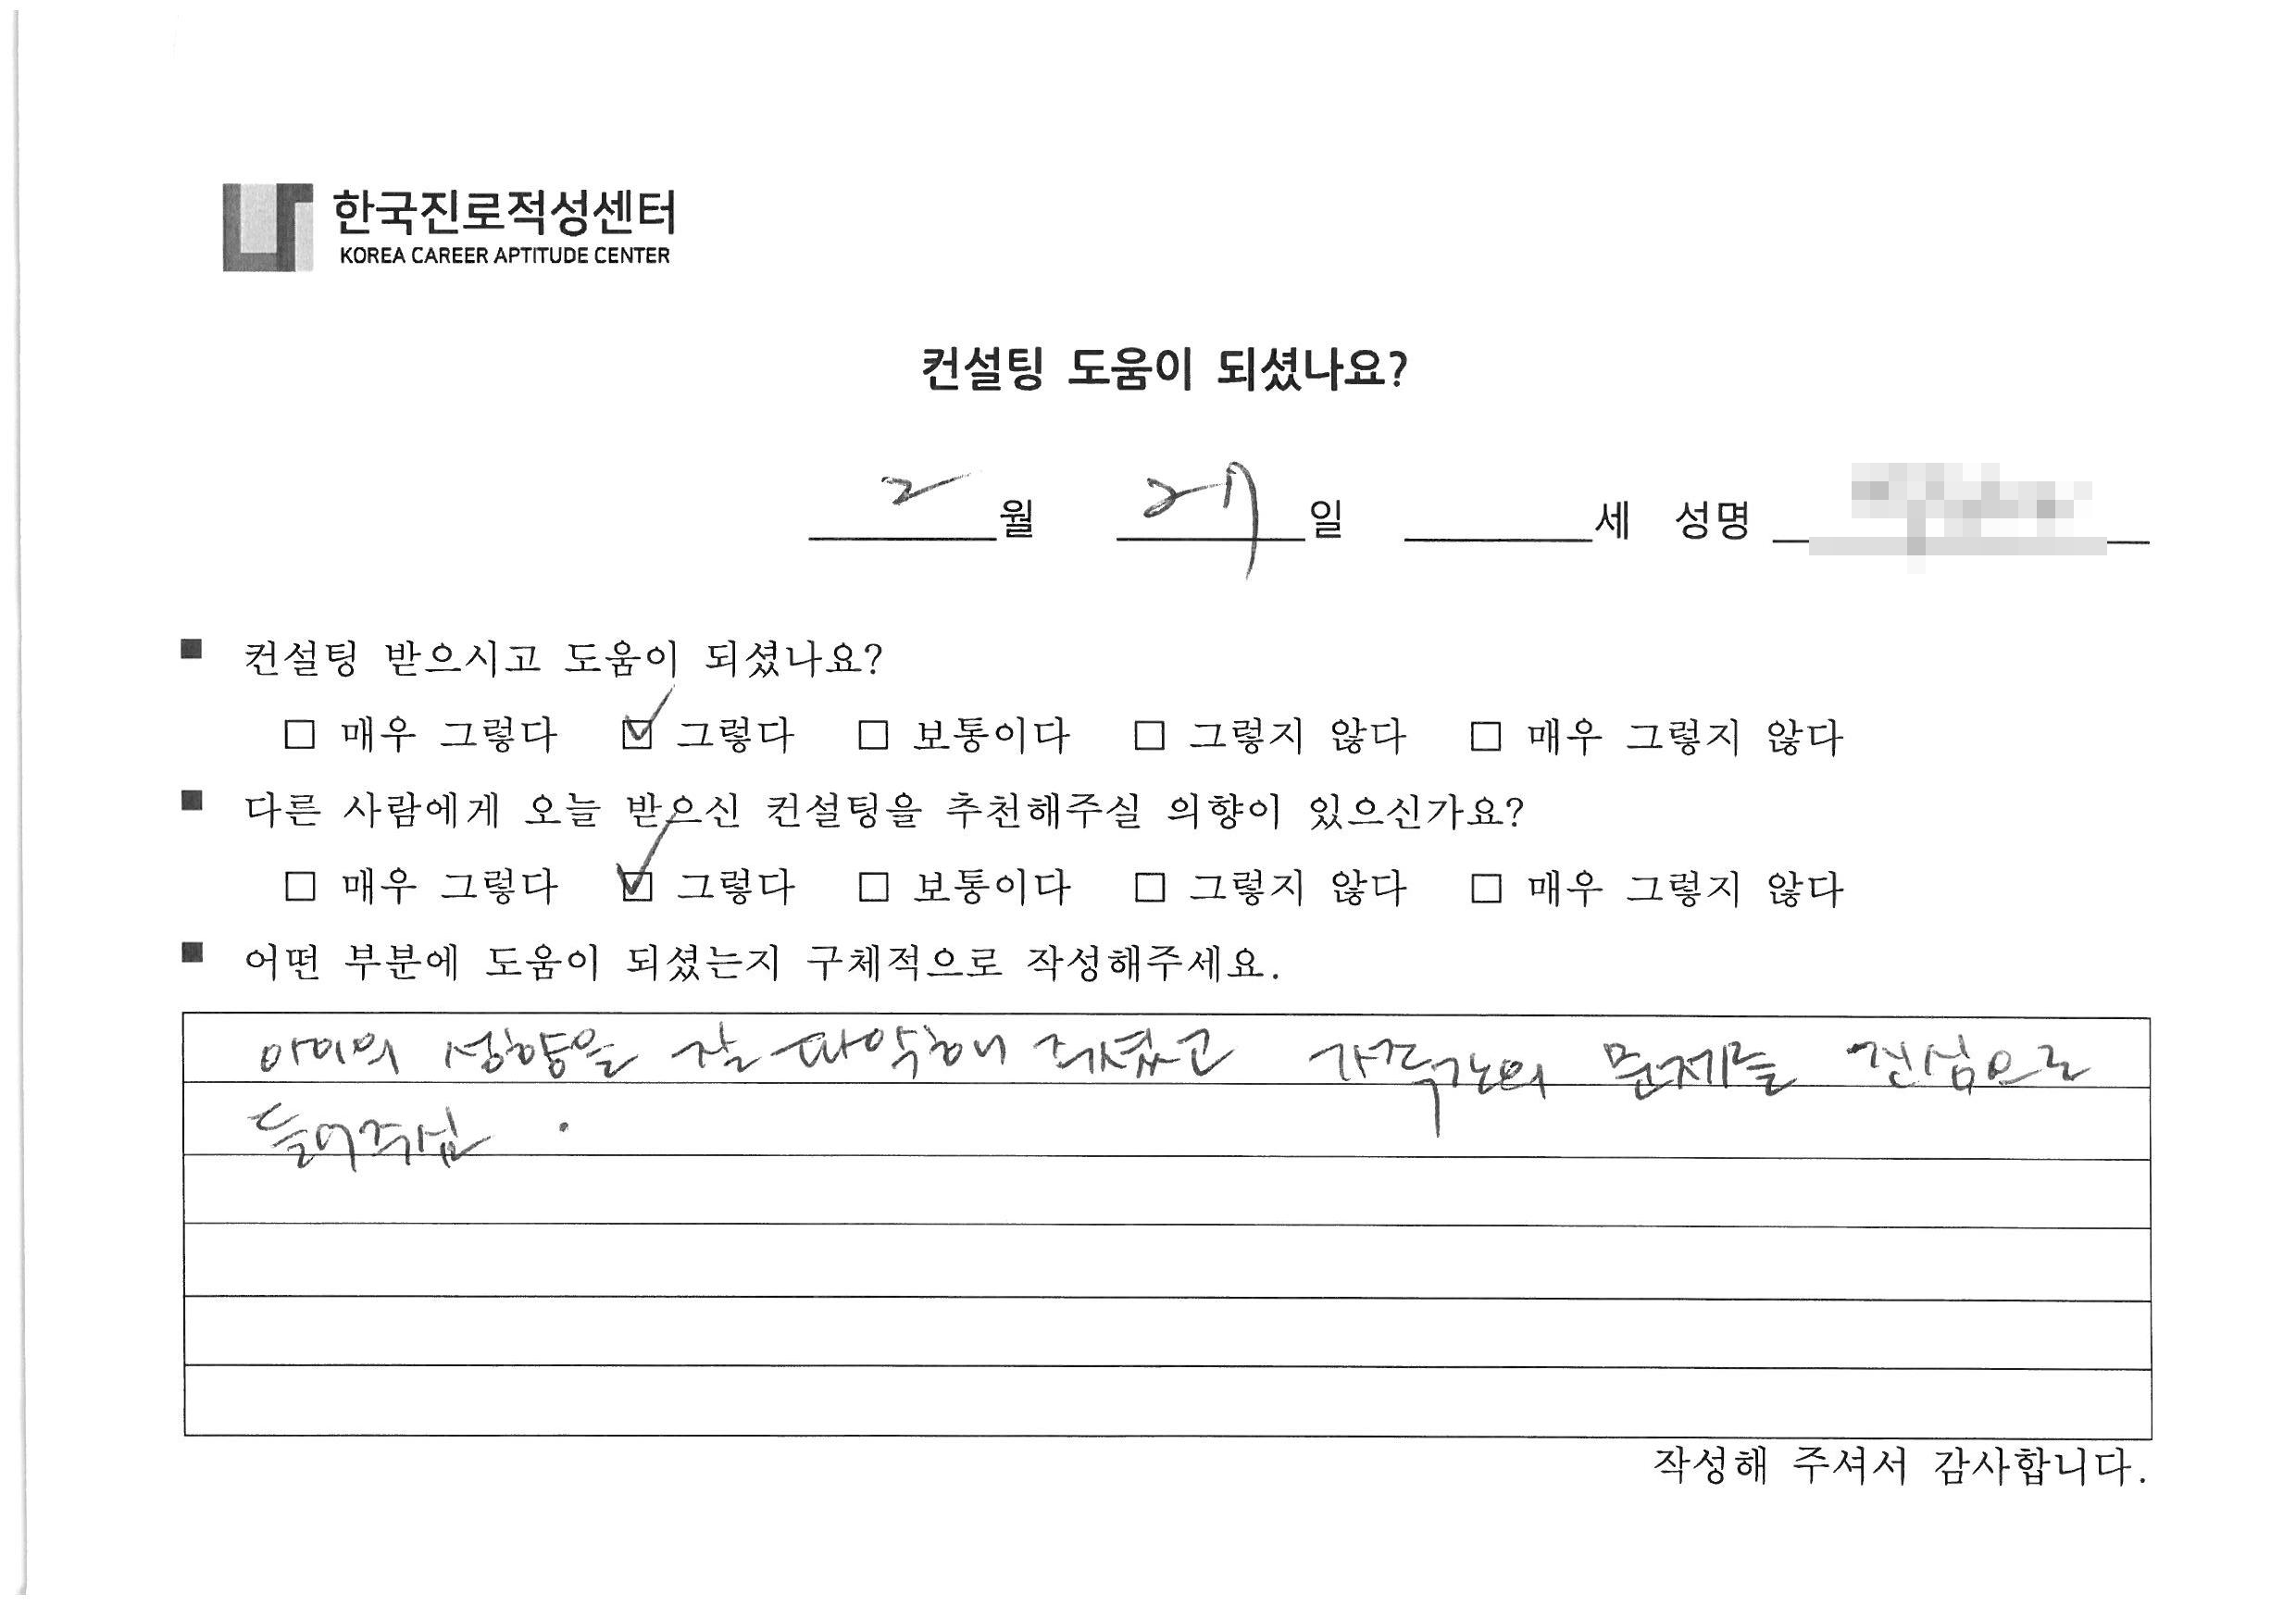 한국진로적성센터
KOREA CAREER APTITUDE CENTER
컨설팅 도움이 되셨나요?
2월 27일 세 성명
■ 컨설팅 받으시고 도움이 되셨나요?
□ 매우 그렇다 ☑ 그렇다 □ 보통이다 □ 그렇지 않다 □ 매우 그렇지 않다
■ 다른 사람에게 오늘 받으신 컨설팅을 추천해주실 의향이 있으신가요?
□ 매우 그렇다 ☑ 그렇다 □ 보통이다 □ 그렇지 않다 □ 매우 그렇지 않다
■ 어떤 부분에 도움이 되셨는지 구체적으로 작성해주세요.
아이의 성향을 잘 파악해 주셨고 가족간의 문제를 진심으로
들어주심.
작성해 주셔서 감사합니다.